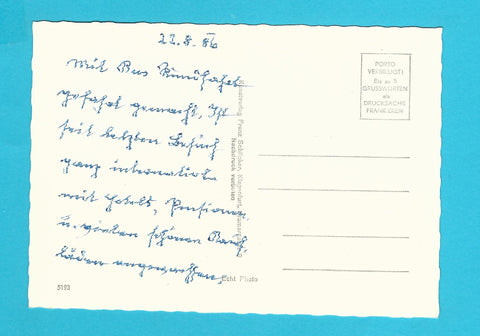 22.8.86
Mit Bus Rundfahrt
gemacht. Ist
seit letzten Besuch
ganz international
mit Hotels, Pensionen
u. vielen schönen
läden angewachsen.
PORTO
VERBILLIGT!
Bis zu 5
GRUSSWORTEN
als
DRUCKSACHE
FRANKIEREN
Kunstverlag Franz Schilcher, Klagenfurt,
Nachdruck verboten
Echt Photo
5193